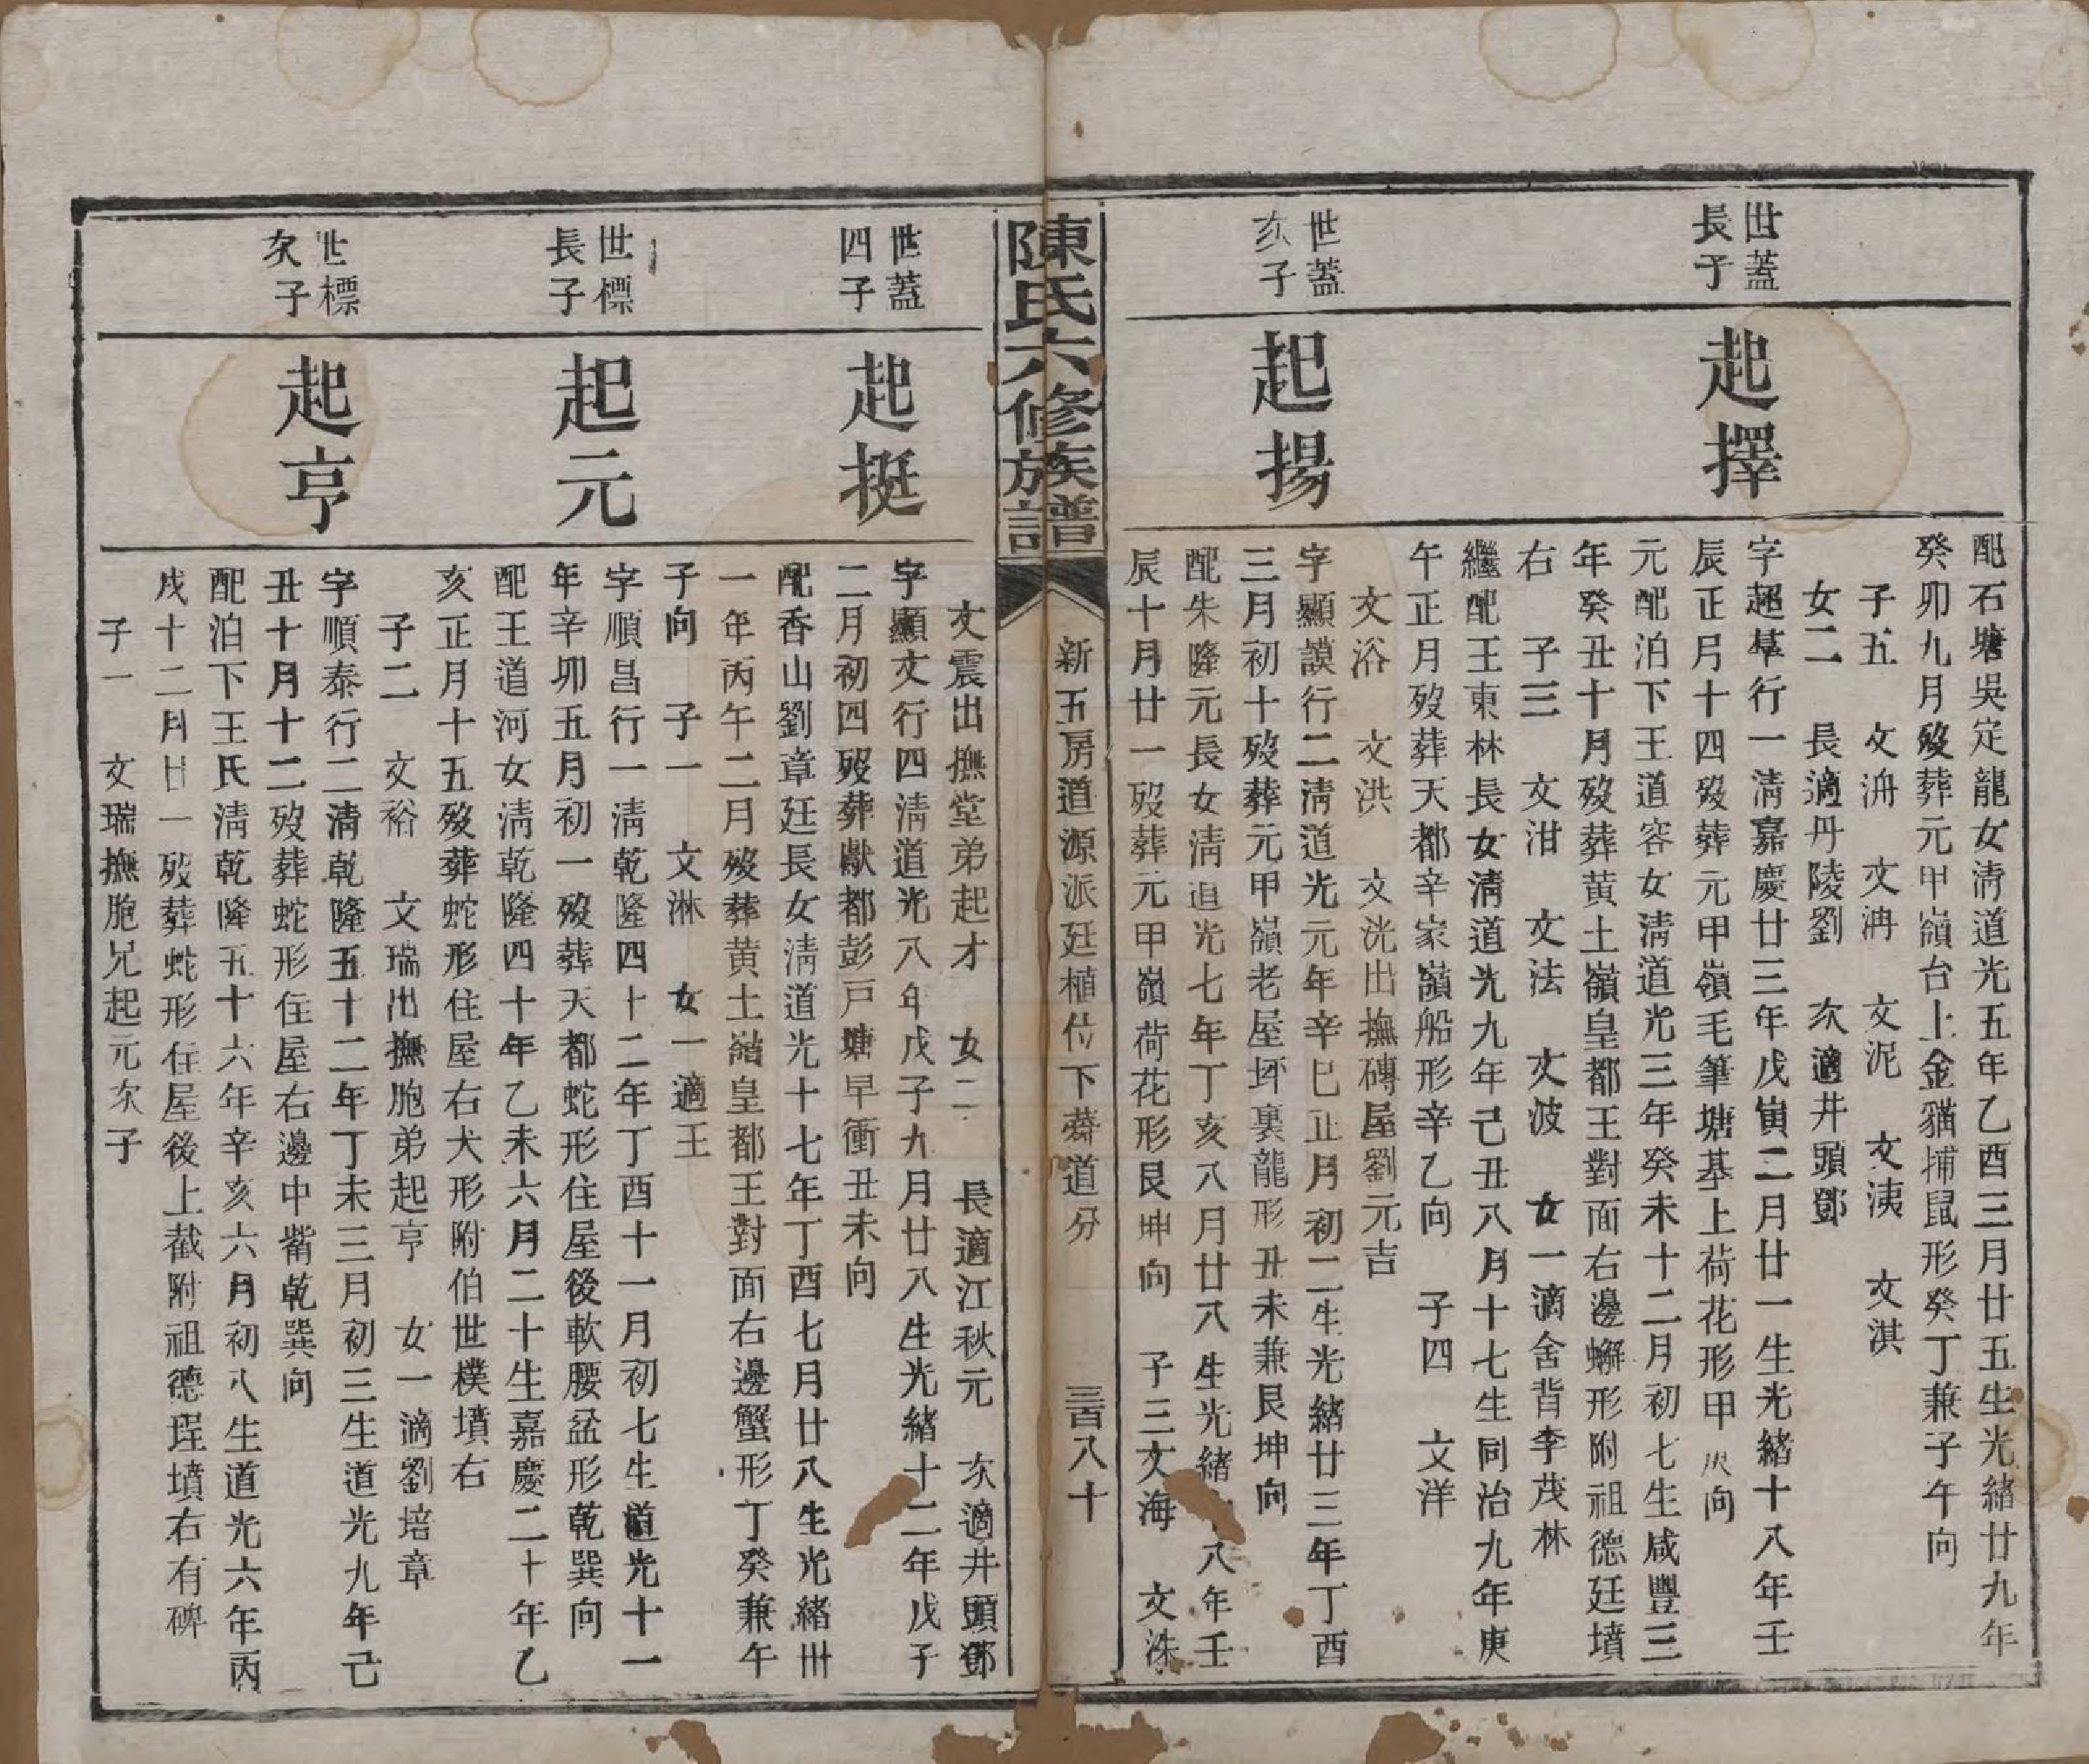 配石塘吳定龍女淸道光五年乙酉三月廿五生光緒廿九年
癸卯九月歿葬元甲嶺台上金貓捕鼠形癸丁兼子午向
子五　文洀　文洅　文泥　文洟　文淇
女二　長適丹陵劉　次適井頭鄧
世蓋
長子
起擇
字超羣行一淸嘉慶廿三年戊寅二月廿一生光緒十八年壬
辰正月十四歿葬元甲嶺毛筆塘基上荷花形甲庚向
元配泊下王道容女淸道光三年癸未十二月初七生咸豐三
年癸丑十月歿葬黃土嶺皇都王對面右邊蠏形附祖德廷墳
右　子三　文泔　文法　文波　女一適舍背李茂林
繼配王東林長女淸道光九年己丑八月十七生同治九年庚
午正月歿葬天都辛家嶺船形辛乙向　子四　文洋
文浴　文洪　文洸出撫磚屋劉元吉
世蓋
次子
起揚
字顯謨行二淸道光元年辛巳正月初二生光緒廿三年丁酉
三月初十歿葬元甲嶺老屋坪裏龍形丑未兼艮坤向
配朱隆元長女淸道光七年丁亥八月廿八生光緒十八年壬
辰十月廿一歿葬元甲嶺荷花形艮坤向　子三文海　文洙
陳氏六修族譜
新五房道源派廷植位下蕣道分
三百八十
文震出撫堂弟起才　女二　長適江秋元　次適井頭鄧
世蓋
四子
起挺
字顯文行四淸道光八年戊子九月廿八生光緒十二年戊子
二月初四歿葬獻都彭戸塘早衝丑未向
配香山劉章廷長女淸道光十七年丁酉七月廿八生光緒卅
一年丙午二月歿葬黃土嶺皇都王對面右邊蟹形丁癸兼午
子向　子一　文淋　女一適王
世標
長子
起元
字順昌行一淸乾隆四十二年丁酉十一月初七生道光十一
年辛卯五月初一歿葬天都蛇形住屋後軟腰盆形乾巽向
配王道河女淸乾隆四十年乙未六月二十生嘉慶二十年乙
亥正月十五歿葬蛇形住屋右犬形附伯世樸墳右
子二　文裕　文瑞出撫胞弟起亨　女一適劉培章
世標
次子
起亨
字順泰行二淸乾隆五十二年丁未三月初三生道光九年己
丑十月十二歿葬蛇形住屋右邊中嘴乾巽向
配泊下王氏淸乾隆五十六年辛亥六月初八生道光六年丙
戌十二月廿一歿葬蛇形住屋後上截附祖德珵墳右有碑
子一　文瑞撫胞兄起元次子